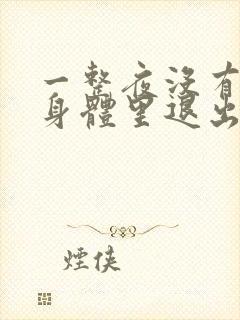 一整夜沒有
身體里退出
煙俠